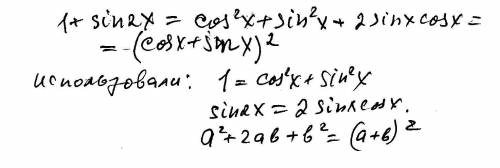 1+ sin2x = cos²x+sin²x+ 2sinxcosx=
= (cosx+sinx)²
использовали: 1=cos²x+sin²x
sin2x=2sinxcosx.
a²+2ab+b²=(a+b)²